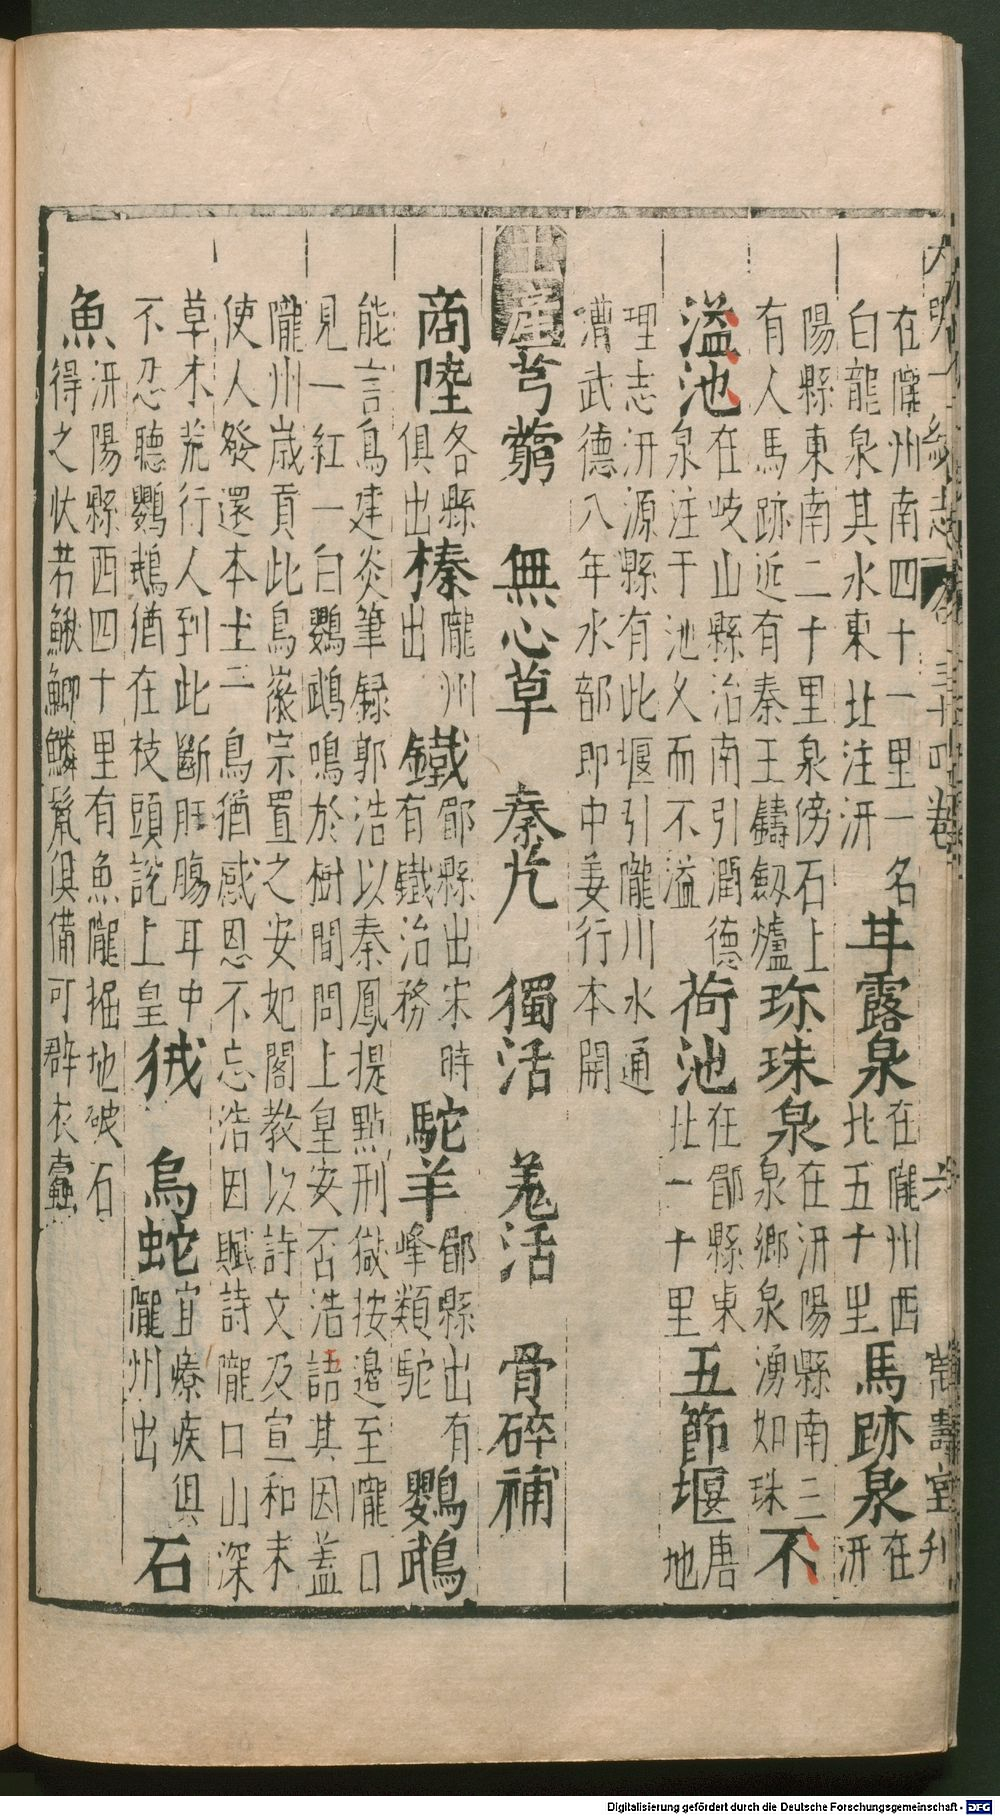 大明一統志 三十四卷 六 萬壽堂刊
在隴州南四十一里一名
白龍泉其水東北注汧
甘露泉
在隴州西
北五十里
馬跡泉
在汧
陽縣東南二十里泉傍石上
有人馬跡近有秦王鑄劔爐
珎珠泉
在汧陽縣南三
泉鄉泉湧如珠
不
溢池
在岐山縣治南引潤德
泉注于池久而不溢
荷池
在郿縣東
北一十里
五節堰
唐地
理志汧源縣有此堰引隴川水通
漕武德八年水部郎中姜行本開
土產
芎藭 無心草 秦艽 獨活 羌活 骨碎補
商陸
各縣
俱出
榛
隴州
出
鐵
郿縣出宋時
有鐵冶務
駝羊
郿縣出有
峰類駝
鸚鵡
能言鳥建炎筆録郭浩以秦鳳提點刑獄按邉至隴口
見一紅一白鸚鵡鳴於樹間問上皇安否浩詰其因盖
隴州歲貢此鳥徽宗置之安妃閣教以詩文及宣和末
使人發還本土二鳥猶感恩不忘浩因賦詩隴口山深
草木荒行人到此斷肝腸耳中
不忍聽鸚鵡猶在枝頭說上皇
狨
烏蛇
宜療疾俱
隴州出
石
魚
汧陽縣西四十里有魚隴掘地破石
得之狀若鰍鯽鱗鬣俱備可辟衣蠹
Digitalisierung gefördert durch die Deutsche Forschungsgemeinschaft - DFG